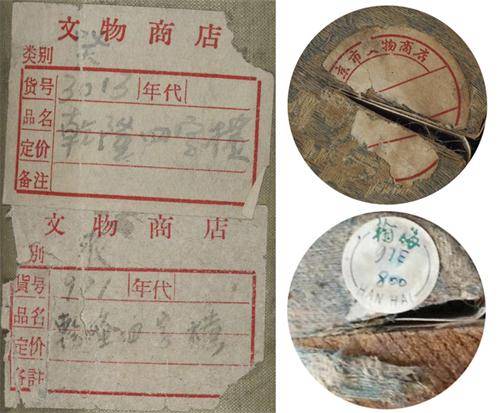 文物商店
类别
货号 年代
品名 乾隆四字横
定价
备注
文物商店
别
货号 901 年代
品名 乾隆四字横
定价
备註
京市文物商店
翰海
800
HAN HAI